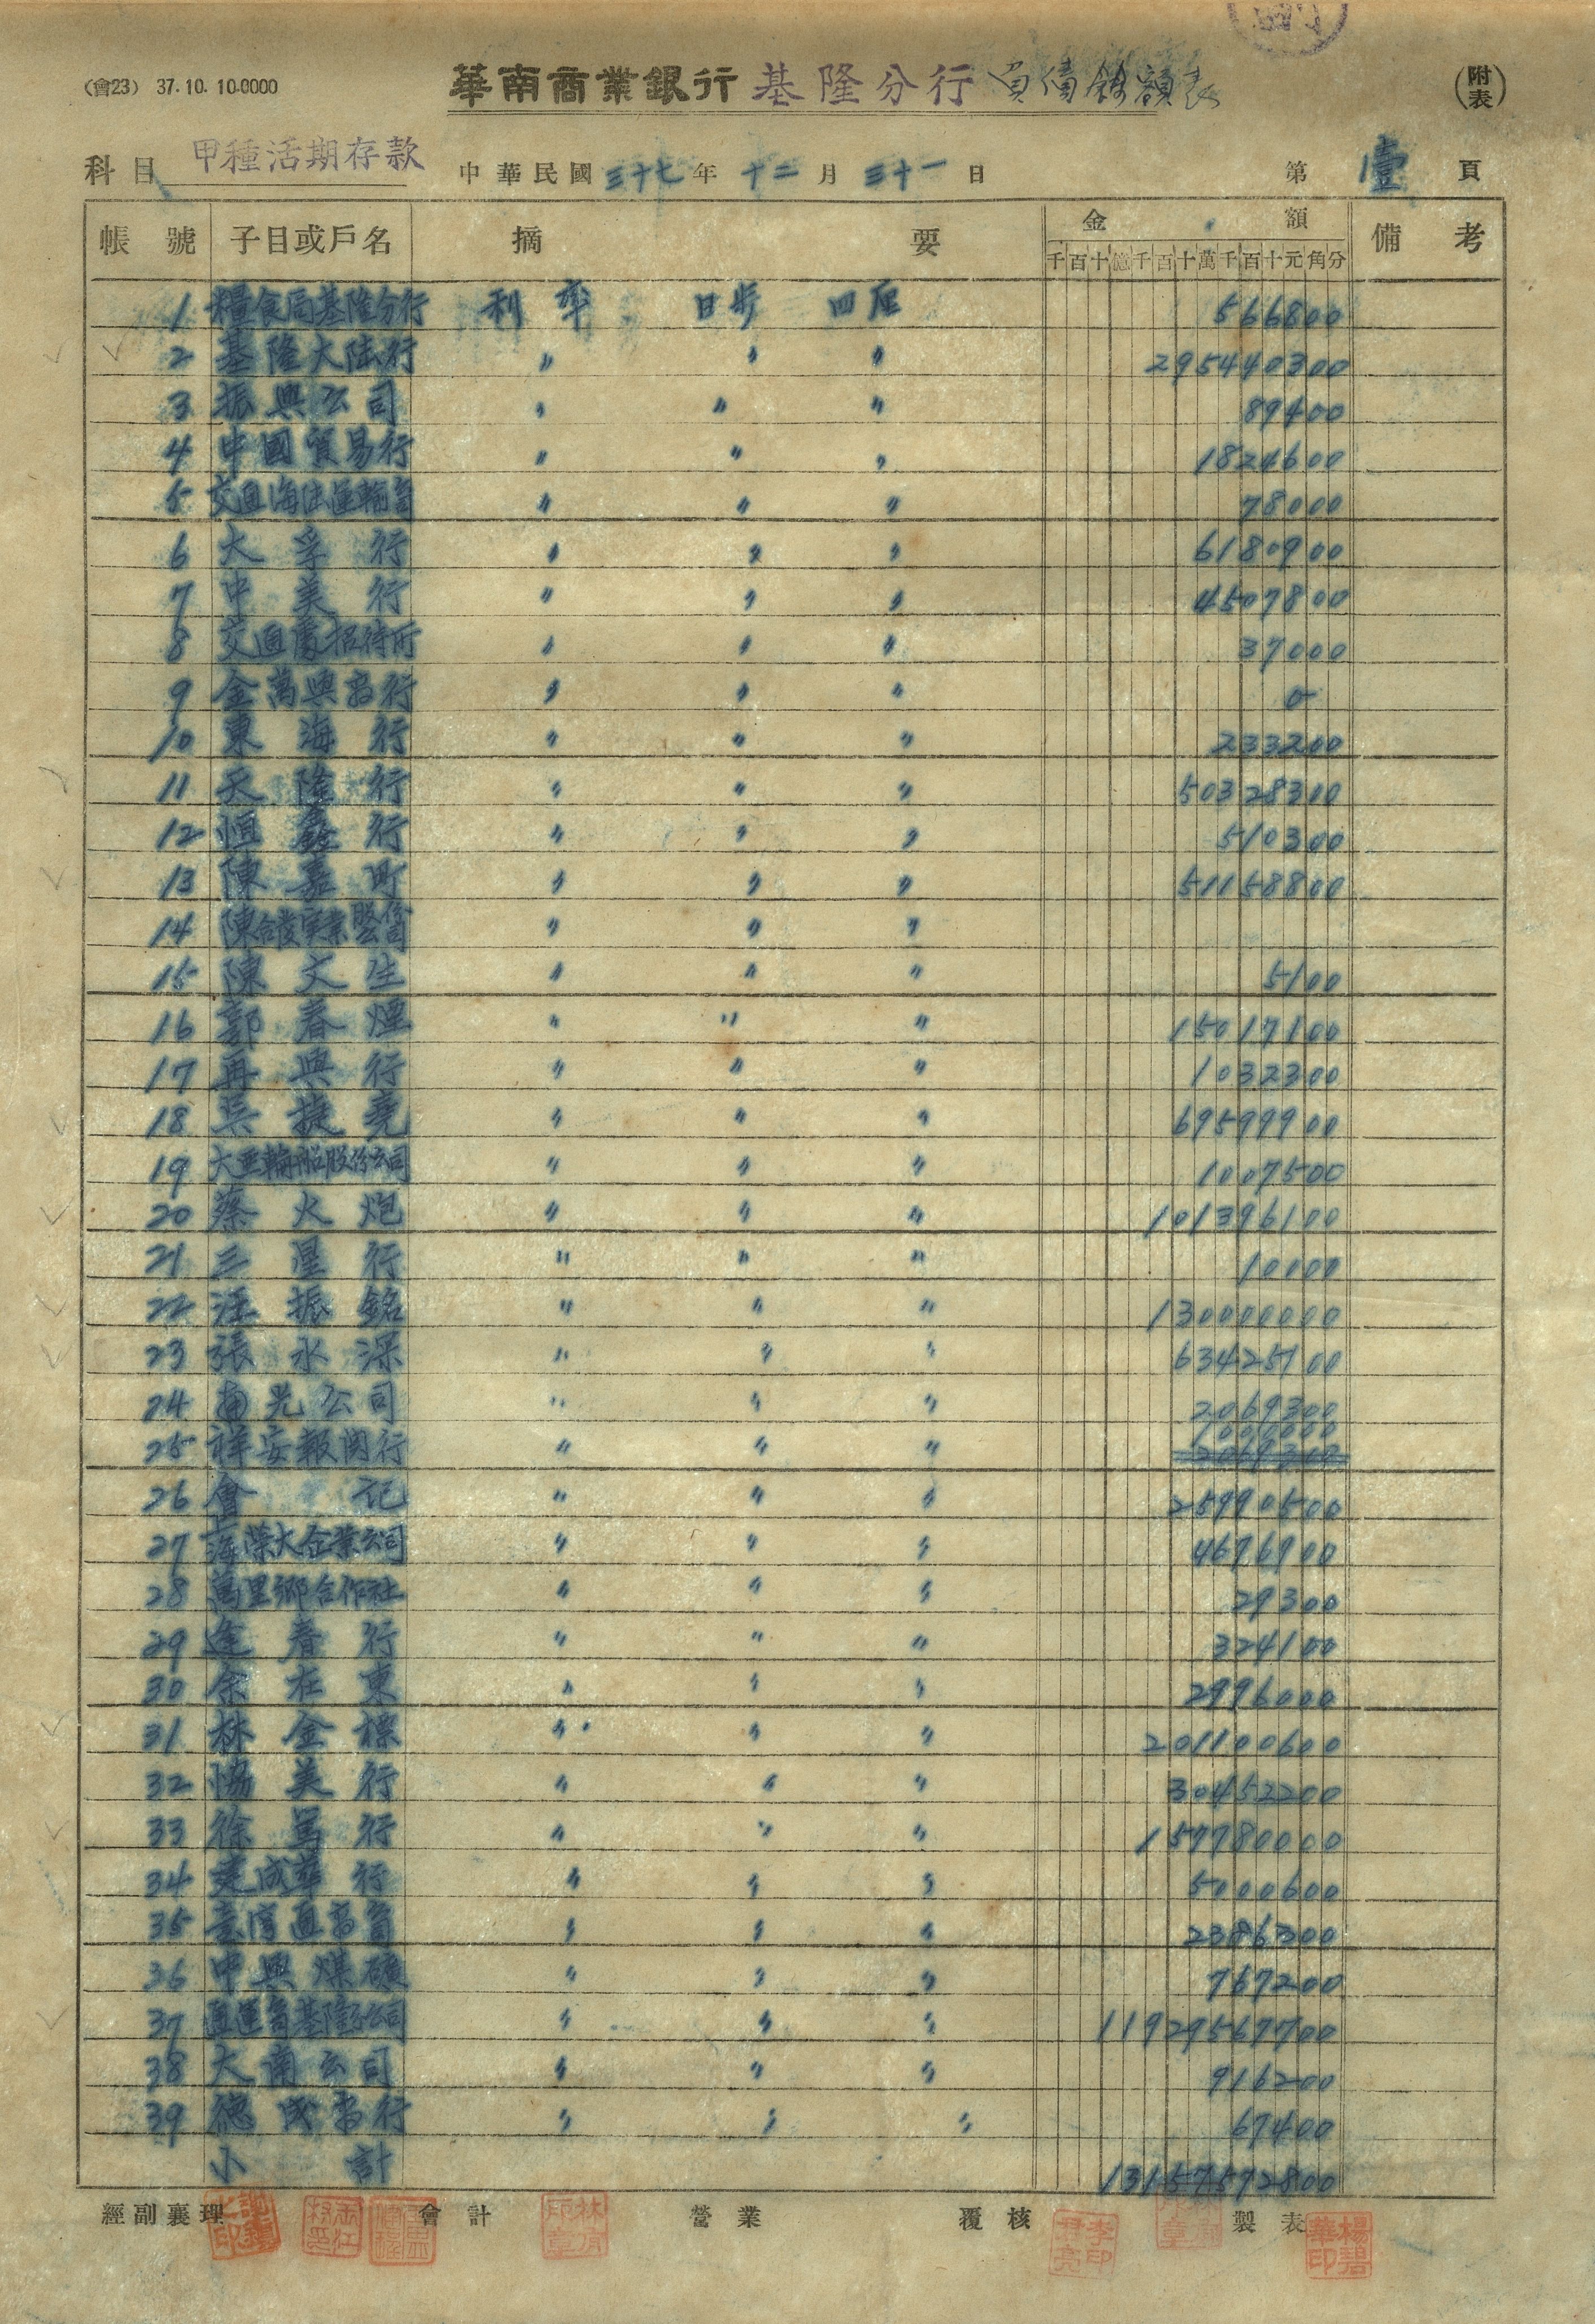 (會23) 37.10.10.0000
華南商業銀行 基隆分行 負債餘額表
(附表)
科目 甲種活期存款 中華民國三十七年十二月三十一日 第壹頁
帳號 子目或戶名 摘要 金額 備考
千百十億千百十萬千百十元角分
1 糧食局基隆分行 利率 日步 四厘 566800
2 基隆大陆行 〃 〃 〃 295440300
3 振興公司 〃 〃 〃 89400
4 中國貿易行 〃 〃 〃 1824600
5 〃 〃 〃 78000
6 大孚行 〃 〃 〃 6180900
7 中美行 〃 〃 〃 4507800
8 交通處招待所 〃 〃 〃 37000
9 金萬興商行 〃 〃 〃 0
10 東海行 〃 〃 〃 233200
11 天隆行 〃 〃 〃 50328300
12 恒鑫行 〃 〃 〃 510300
13 陳嘉町 〃 〃 〃 51158800
14 陳合發実業股份公司 〃 〃 〃
15 陳文生 〃 〃 〃 5100
16 郭春煙 〃 〃 〃 15017100
17 再興行 〃 〃 〃 1032300
18 吳捷堯 〃 〃 〃 69599900
19 大亚輪船股份公司 〃 〃 〃 1007500
20 蔡火炮 〃 〃 〃 101396100
21 三星行 〃 〃 〃 10000
22 汪振銘 〃 〃 〃 130000000
23 張永深 〃 〃 〃 63425700
24 南光公司 〃 〃 〃 2069300
25 祥安報関行 〃 〃 〃 1000000
26 會記 〃 〃 〃 25990500
27 海榮大企業公司 〃 〃 〃 4676900
28 萬里鄉合作社 〃 〃 〃 29300
29 逢春行 〃 〃 〃 324100
30 余在東 〃 〃 〃 2996000
31 林金標 〃 〃 〃 201100600
32 協美行 〃 〃 〃 30452200
33 徐篤行 〃 〃 〃 157780000
34 建成華行 〃 〃 〃 5000600
35 〃 〃 〃 2386200
36 中興煤礦 〃 〃 〃 767200
37 〃 〃 〃 11929569700
38 大南公司 〃 〃 〃 916200
39 德成商行 〃 〃 〃 67400
小計 13157572800
經副襄理 會計 營業 覆核 製表
李尹亮印
楊碧華印